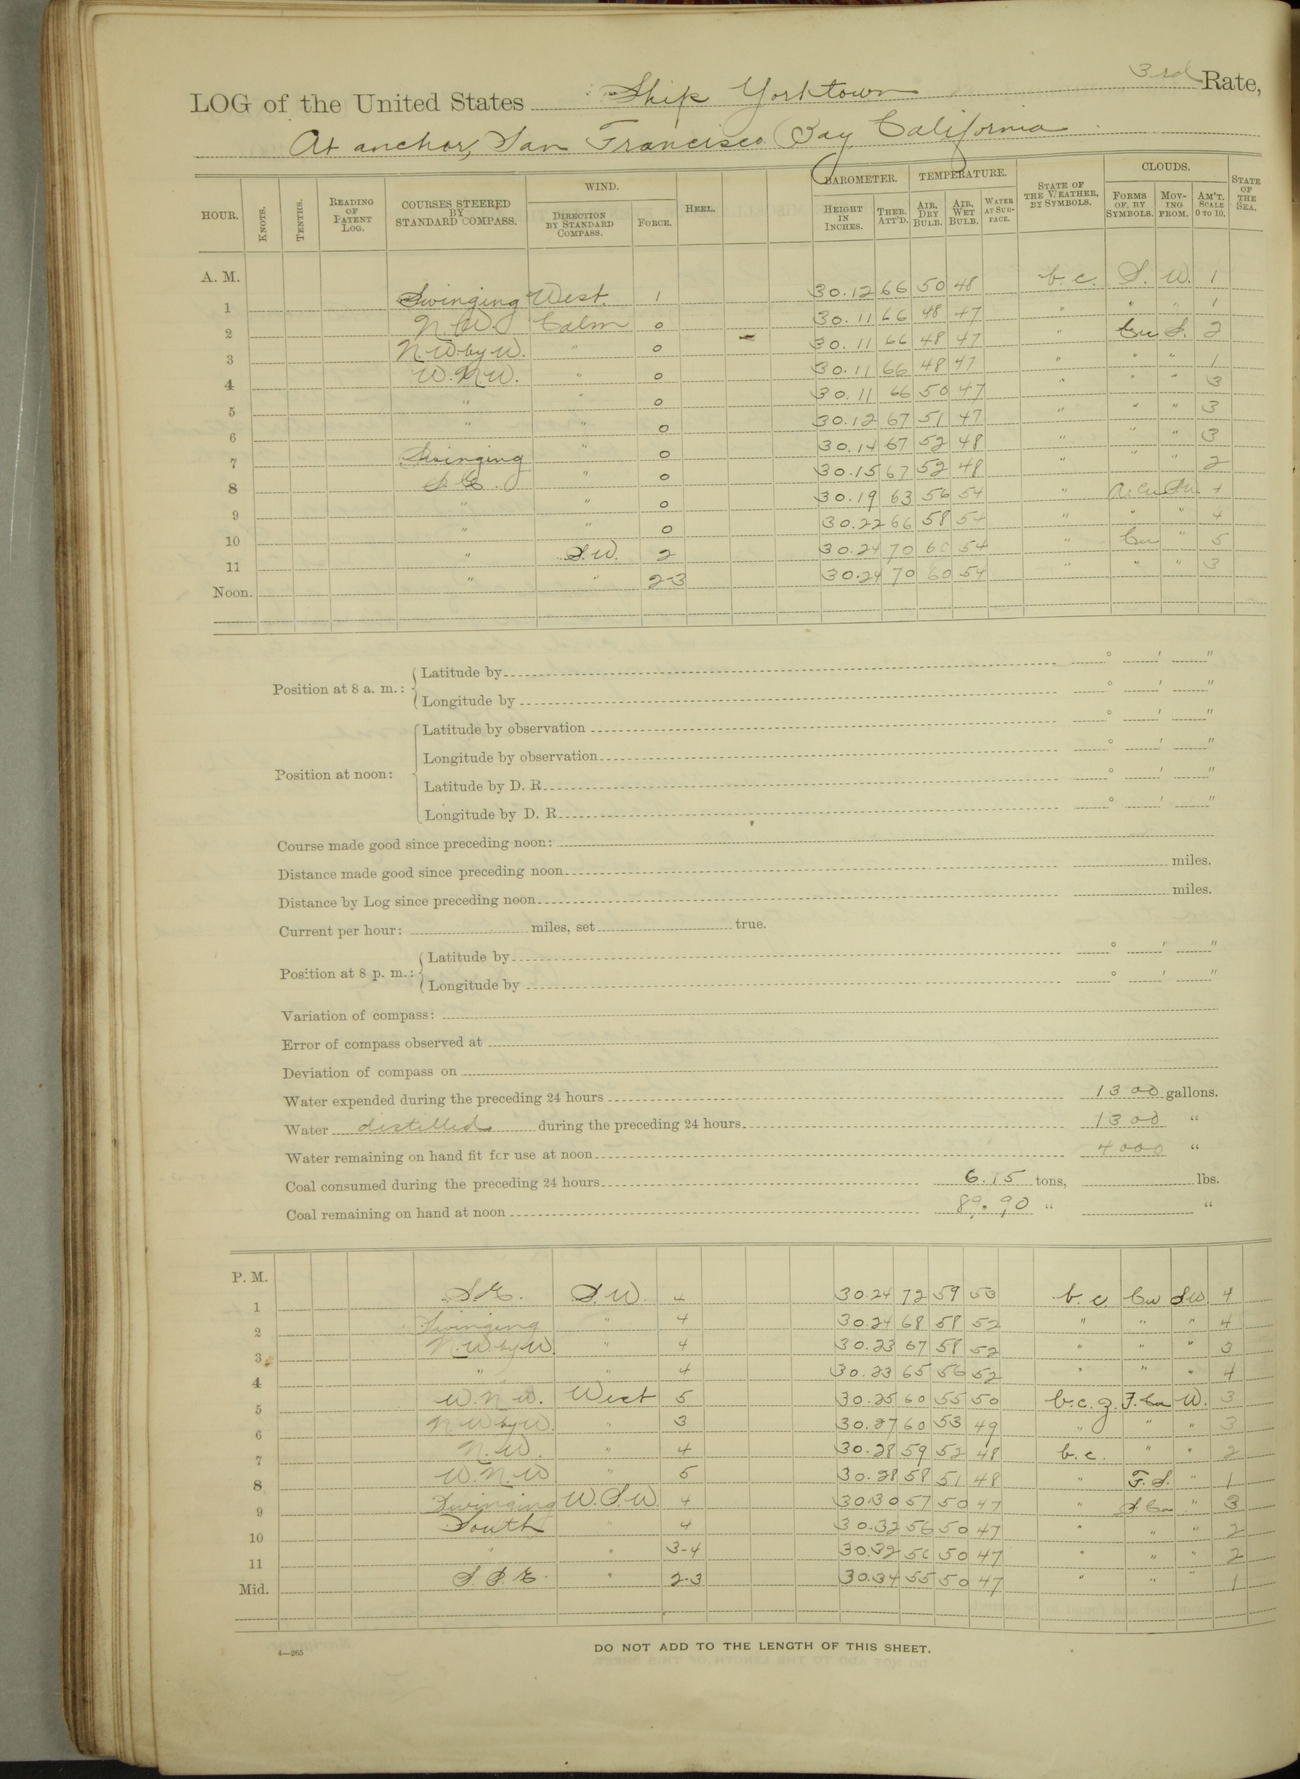 3rd Rate,
LOG of the United States Ship Yorktown
At anchor, San Francisco Bay California
HOUR. KNOTS. TENTHS. READING OF PATENT LOG. COURSES STEERED BY STANDARD COMPASS. WIND. DIRECTION BY STANDARD COMPASS. FORCE. HEEL. BAROMETER. HEIGHT IN INCHES. THER. ATT'D. TEMPERATURE. AIR, DRY BULB. AIR, WET BULB. WATER AT SURFACE. STATE OF THE WEATHER, BY SYMBOLS. CLOUDS. FORMS OF, BY SYMBOLS. MOVING FROM. AM'T. SCALE 0 TO 10. STATE OF THE SEA.
A. M.
1 Swinging West. 1 30.12 66 50 48 b. c. S. W. 1
2 N. W. Calm 0 30.11 66 48 47 " " 1
3 N. W. by W. " 0 30.11 66 48 47 " Cu S. 2
4 W. N. W. " 0 30.11 66 48 47 " " " 1
5 " " 0 30.11 66 50 47 " " " 3
6 " " 0 30.12 67 51 47 " " " 3
7 Swinging " 0 30.14 67 52 48 " " " 3
8 S. E. " 0 30.15 67 52 48 " " " 2
9 " " 0 30.19 63 56 54 " A. Cu SW 4
10 " " 0 30.22 66 58 54 " " " 4
11 " S. W. 2 30.24 70 60 54 " Cu " 5
Noon. " " 2-3 30.24 70 60 54 " " " 3
Position at 8 a. m.: Latitude by ° ′ ″
Longitude by ° ′ ″
Position at noon: Latitude by observation ° ′ ″
Longitude by observation ° ′ ″
Latitude by D. R. ° ′ ″
Longitude by D. R. ° ′ ″
Course made good since preceding noon:
Distance made good since preceding noon miles.
Distance by Log since preceding noon miles.
Current per hour: miles, set true.
Position at 8 p. m.: Latitude by ° ′ ″
Longitude by ° ′ ″
Variation of compass:
Error of compass observed at
Deviation of compass on
Water expended during the preceding 24 hours 1300 gallons.
Water distilled during the preceding 24 hours 1300 "
Water remaining on hand fit for use at noon 4000 "
Coal consumed during the preceding 24 hours 6.15 tons, lbs.
Coal remaining on hand at noon 89.90 " "
P. M.
1 S. E. S. W. 4 30.24 72 59 53 b. c Cu SW 4
2 Swinging " 4 30.24 68 58 52 " " " 4
3 N. W. by W. " 4 30.23 67 58 52 " " " 3
4 " " 4 30.23 65 56 52 " " " 4
5 W. N. W. West 5 30.25 60 55 50 b. c. g. F. Cu W. 3
6 N. W. by W. " 3 30.27 60 53 49 " " " 3
7 N. W. " 4 30.28 59 52 48 b. c. " " 2
8 W. N. W " 5 30.28 58 51 48 " F. S. " 1
9 Swinging W. S. W. 4 30.30 57 50 47 " S. Cu " 3
10 South " 4 30.32 56 50 47 " " " 2
11 " " 3-4 30.32 56 50 47 " " " 2
Mid. S. S. E. " 2-3 30.34 55 50 47 " " " 1
4—265
DO NOT ADD TO THE LENGTH OF THIS SHEET.